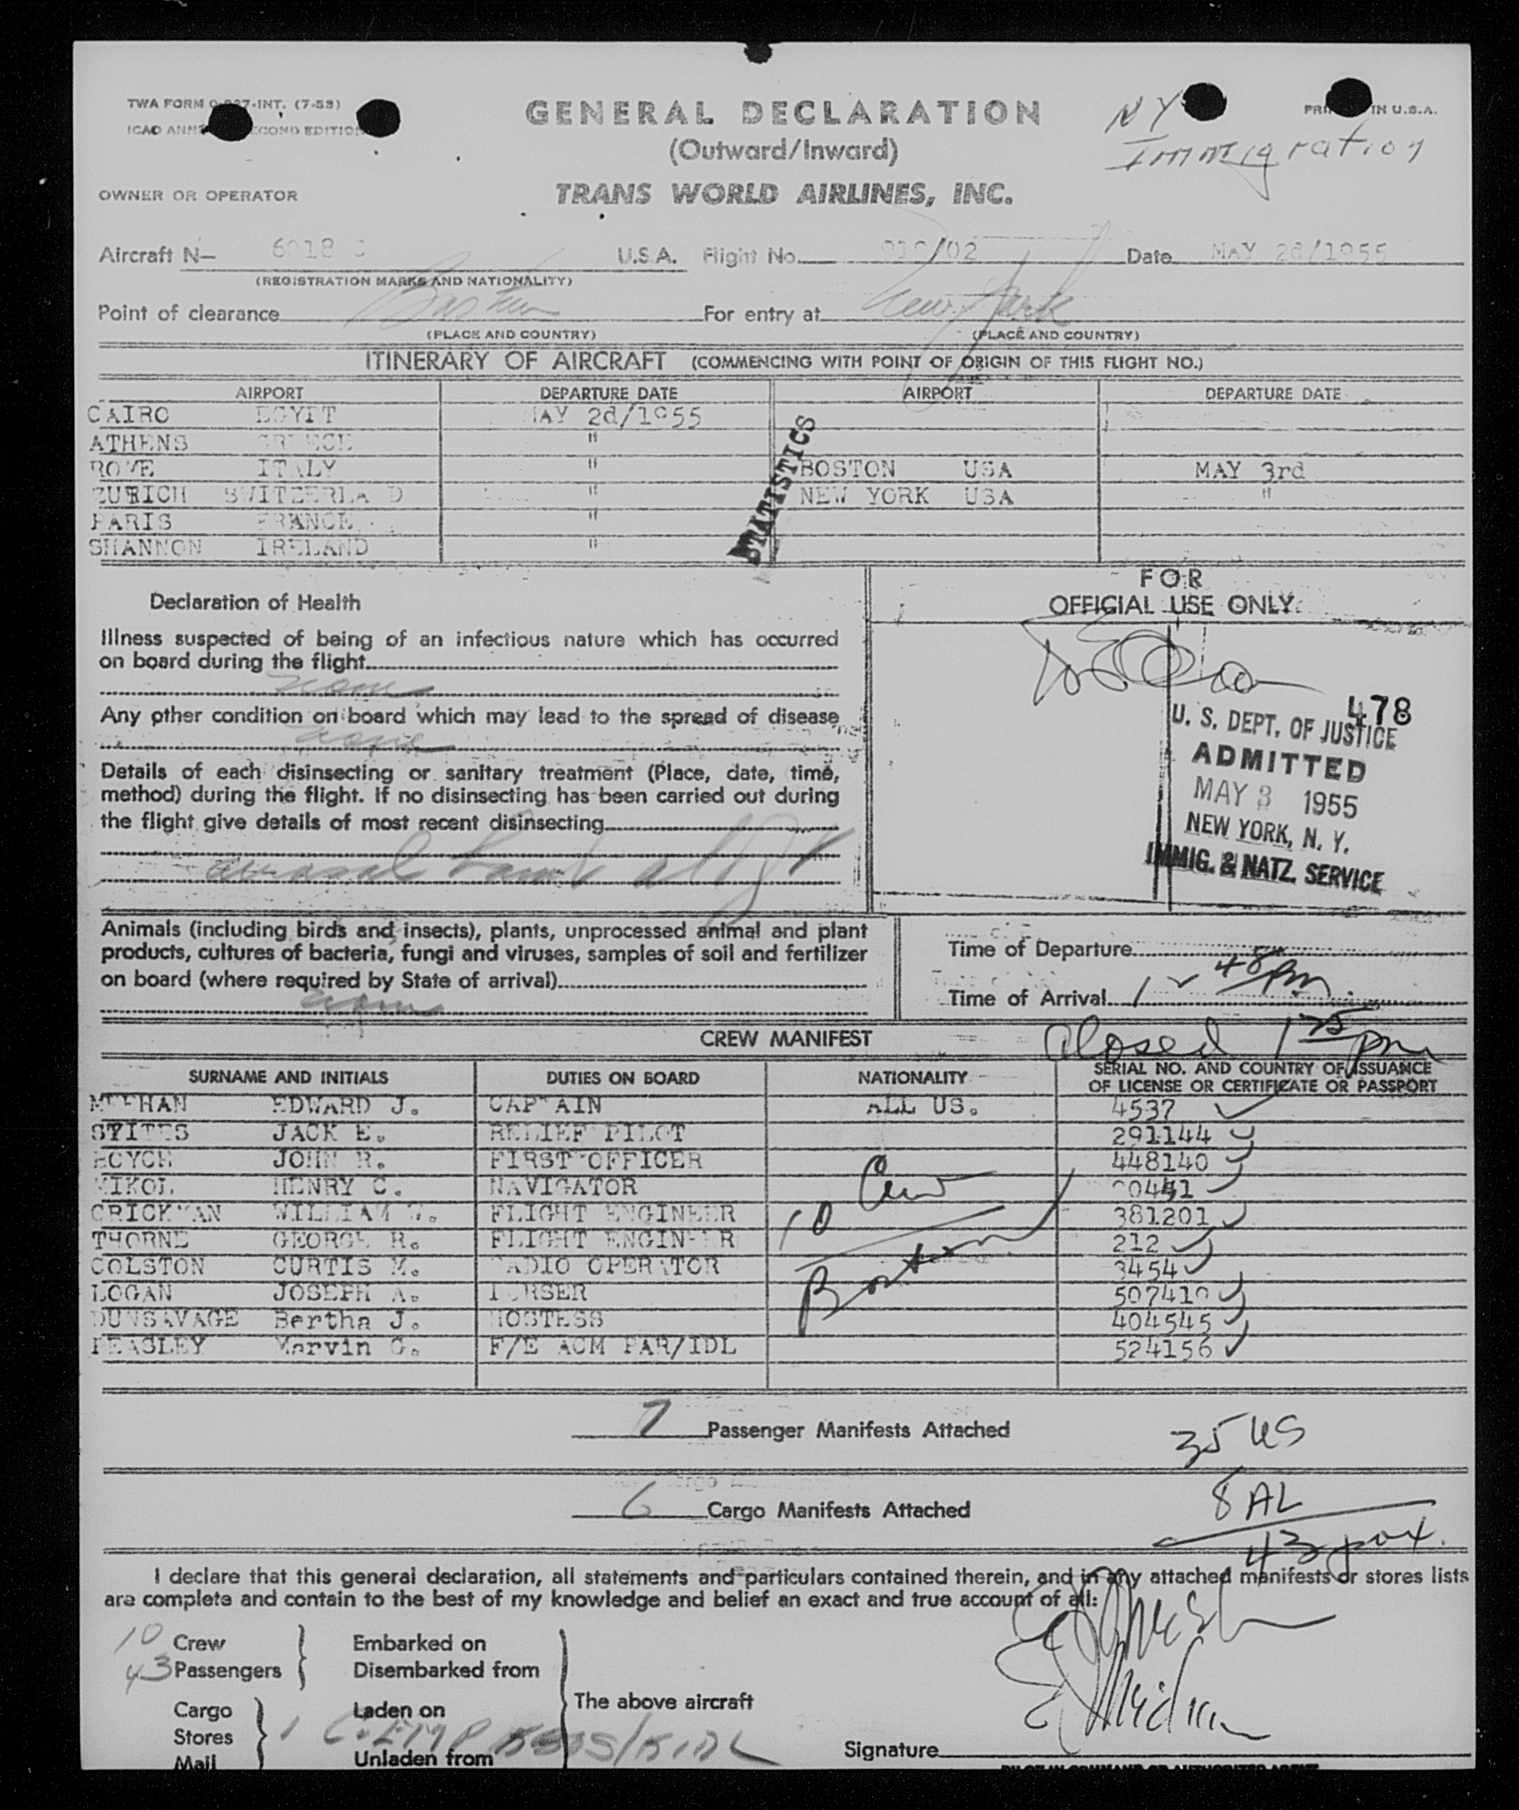 TWA FORM INT. (7-53)
GENERAL DECLARATION
NY
IN U.S.A.
ICAO SECOND EDITION
(Outward/Inward)
Immigration
OWNER OR OPERATOR
TRANS WORLD AIRLINES, INC.
Aircraft N— U.S.A. Flight No. /02 Date MAY 2d/1955
(REGISTRATION MARKS AND NATIONALITY)
Point of clearance Boston For entry at New York
(PLACE AND COUNTRY) (PLACE AND COUNTRY)
ITINERARY OF AIRCRAFT (COMMENCING WITH POINT OF ORIGIN OF THIS FLIGHT NO.)
AIRPORT DEPARTURE DATE AIRPORT DEPARTURE DATE
CAIRO EGYPT MAY 2d/1955
ATHENS GREECE "
ROME ITALY " BOSTON USA MAY 3rd
ZURICH SWITZERLAND " NEW YORK USA "
PARIS FRANCE "
SHANNON IRELAND "
STATISTICS
FOR
OFFICIAL USE ONLY
Declaration of Health
Illness suspected of being of an infectious nature which has occurred
on board during the flight
none
Any other condition on board which may lead to the spread of disease
none
Details of each disinsecting or sanitary treatment (Place, date, time,
method) during the flight. If no disinsecting has been carried out during
the flight give details of most recent disinsecting
478
U. S. DEPT. OF JUSTICE
ADMITTED
MAY 3 1955
NEW YORK, N. Y.
IMMIG. & NATZ. SERVICE
Animals (including birds and insects), plants, unprocessed animal and plant
products, cultures of bacteria, fungi and viruses, samples of soil and fertilizer
on board (where required by State of arrival)
none
Time of Departure
Time of Arrival 1 48 pm.
CREW MANIFEST
Closed 1 pm
SURNAME AND INITIALS DUTIES ON BOARD NATIONALITY SERIAL NO. AND COUNTRY OF ISSUANCE
OF LICENSE OR CERTIFICATE OR PASSPORT
MEEHAN EDWARD J. CAPTAIN ALL US. 4537
STITES JACK E. RELIEF PILOT 291144
BOYCE JOHN R. FIRST OFFICER 448140
HENRY C. NAVIGATOR
CRICKMAN WILLIAM W. FLIGHT ENGINEER 381201
THORNE GEORGE H. FLIGHT ENGINEER 212
COLSTON CURTIS M. RADIO OPERATOR 3454
LOGAN JOSEPH A. PURSER
DUNSAVAGE Bertha J. HOSTESS 404545
Marvin G. F/E ACM PAR/IDL 524156
10 Crew
Boston
7 Passenger Manifests Attached
35 US
6 Cargo Manifests Attached
8 AL
43 pax.
I declare that this general declaration, all statements and particulars contained therein, and in any attached manifests or stores lists
are complete and contain to the best of my knowledge and belief an exact and true account of all:
10 Crew Embarked on
43 Passengers Disembarked from
The above aircraft
Cargo Laden on
Stores
Mail Unladen from
Signature
PILOT IN COMMAND OR AUTHORIZED AGENT